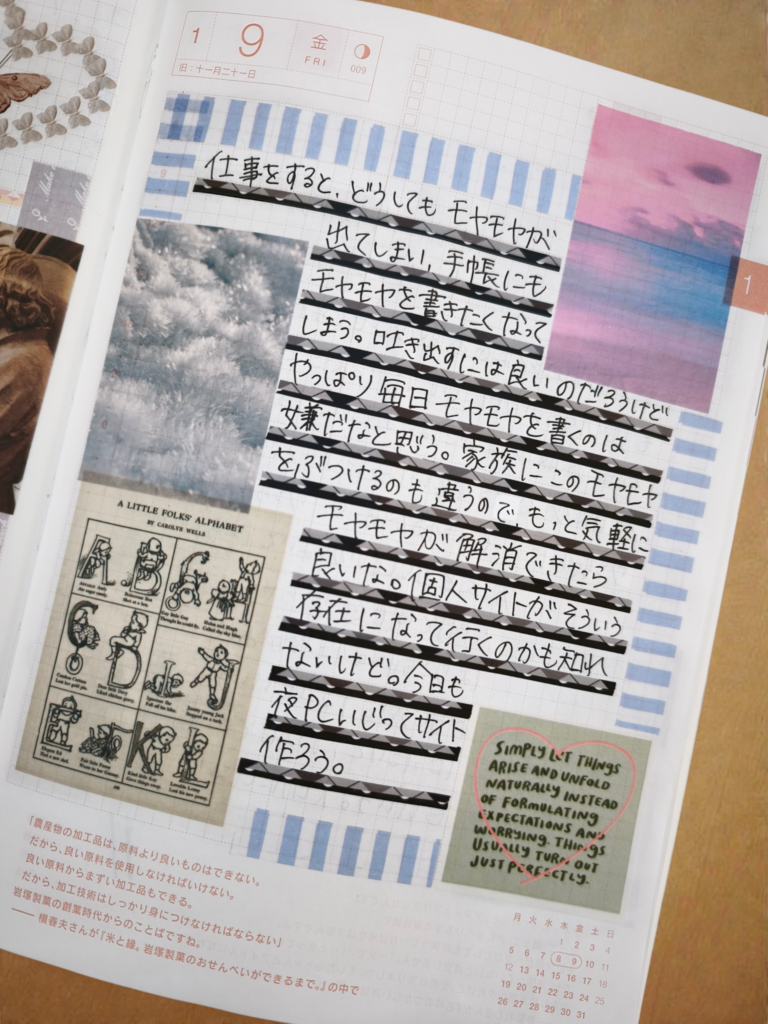 1 9 金 FRI 009
旧:十一月二十一日
仕事をすると、どうしても モヤモヤが
出てしまい、手帳にも
モヤモヤを書きたくなって
しまう。吐き出すには良いのだろうけど
やっぱり毎日モヤモヤを書くのは
嫌だなと思う。家族にこのモヤモヤ
をぶつけるのも違うので、もっと気軽に
モヤモヤが解消できたら
良いな。個人サイトがそういう
存在になって行くのかも知れ
ないけど。今日も
夜PCいじってサイト
作ろう。
1
A LITTLE FOLKS' ALPHABET
BY CAROLYN WELLS
SIMPLY LET THINGS
ARISE AND UNFOLD
NATURALLY INSTEAD
OF FORMULATING
EXPECTATIONS AND
WORRYING. THINGS
USUALLY TURN OUT
JUST PERFECTLY.
「農産物の加工品は、原料より良いものはできない。
だから、良い原料を使用しなければいけない。
良い原料からまずい加工品もできる。
だから、加工技術はしっかり身につけなければならない」
岩塚製菓の創業時代からのことばですね。
── 槇春夫さんが『米と縁。岩塚製菓のおせんべいができるまで。』の中で
月 火 水 木 金 土 日
1 2 3 4
5 6 7 8 9 10 11
12 13 14 15 16 17 18
19 20 21 22 23 24 25
26 27 28 29 30 31